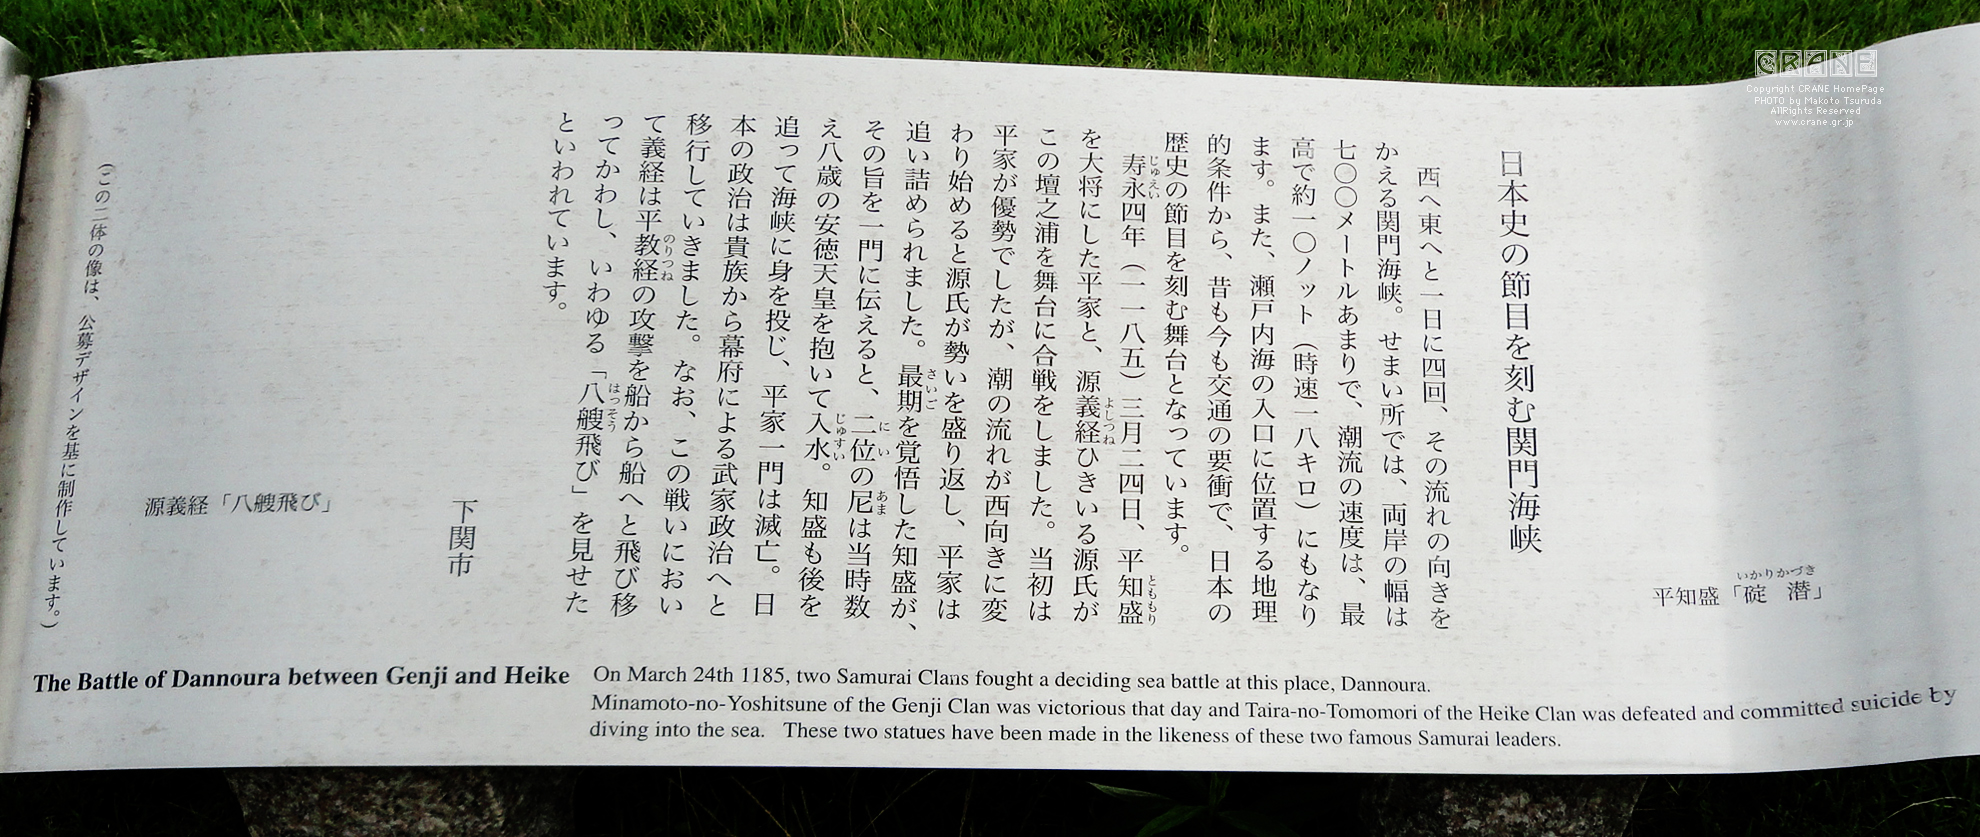 平知盛「碇 潜」
いかりかづき
日本史の節目を刻む関門海峡
西へ東へと一日に四回、その流れの向きを
かえる関門海峡。せまい所では、両岸の幅は
七〇〇メートルあまりで、潮流の速度は、最
高で約一〇ノット（時速一八キロ）にもなり
ます。また、瀬戸内海の入口に位置する地理
的条件から、昔も今も交通の要衝で、日本の
歴史の節目を刻む舞台となっています。
寿永四年（一一八五）三月二四日、平知盛
じゅえい
とももり
を大将にした平家と、源義経ひきいる源氏が
よしつね
この壇之浦を舞台に合戦をしました。当初は
平家が優勢でしたが、潮の流れが西向きに変
わり始めると源氏が勢いを盛り返し、平家は
追い詰められました。最期を覚悟した知盛が、
さいご
その旨を一門に伝えると、二位の尼は当時数
にい
あま
え八歳の安徳天皇を抱いて入水。知盛も後を
じゅすい
追って海峡に身を投じ、平家一門は滅亡。日
本の政治は貴族から幕府による武家政治へと
移行していきました。なお、この戦いにおい
て義経は平教経の攻撃を船から船へと飛び移
のりつね
ってかわし、いわゆる「八艘飛び」を見せた
はっそう
といわれています。
下関市
源義経「八艘飛び」
（この二体の像は、公募デザインを基に制作しています。）
The Battle of Dannoura between Genji and Heike On March 24th 1185, two Samurai Clans fought a deciding sea battle at this place, Dannoura.
Minamoto-no-Yoshitsune of the Genji Clan was victorious that day and Taira-no-Tomomori of the Heike Clan was defeated and committed suicide by
diving into the sea. These two statues have been made in the likeness of these two famous Samurai leaders.
CRANE
Copyright CRANE HomePage
PHOTO by Makoto Tsuruda
AllRights Reserved
www.crane.gr.jp